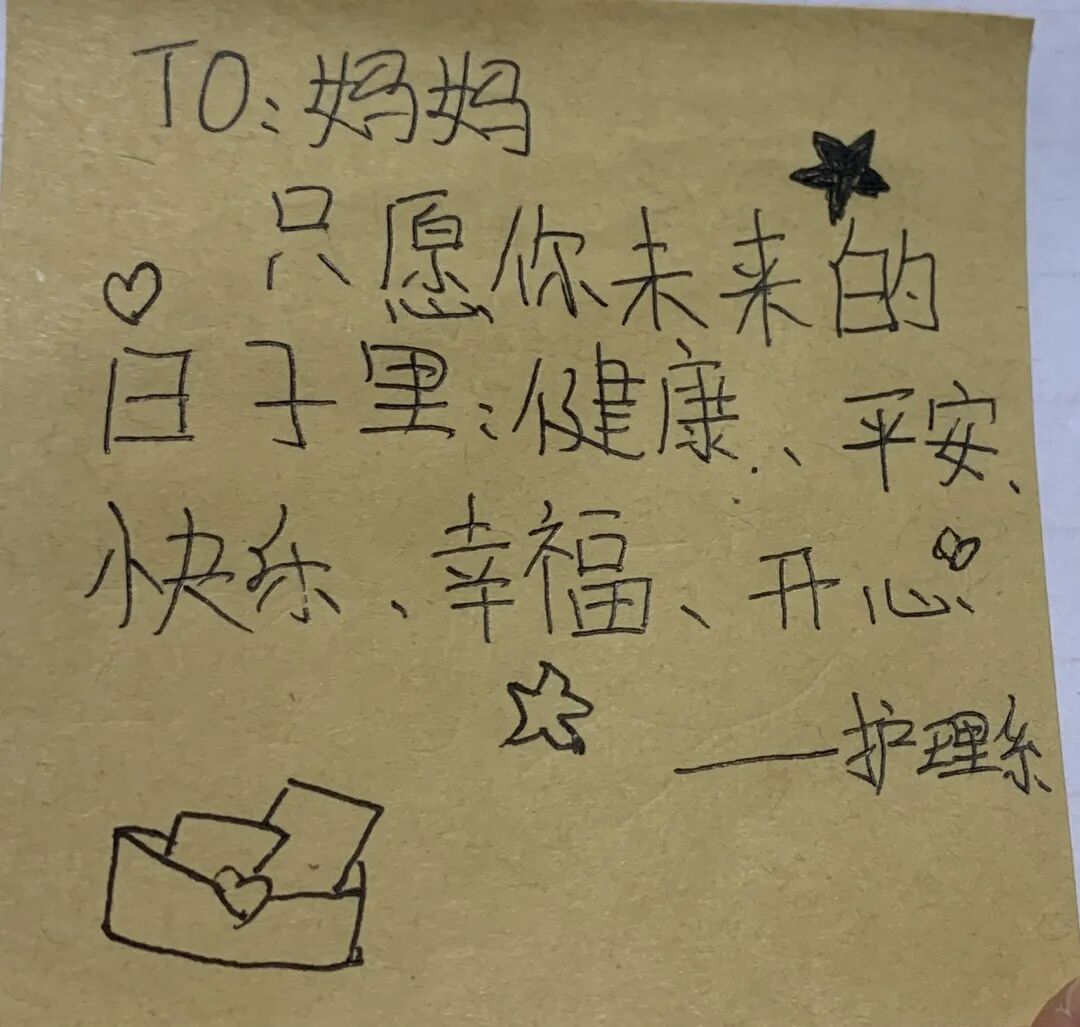 TO:妈妈
只愿你未来的
日子里:健康、平安、
快乐、幸福、开心
——护理系